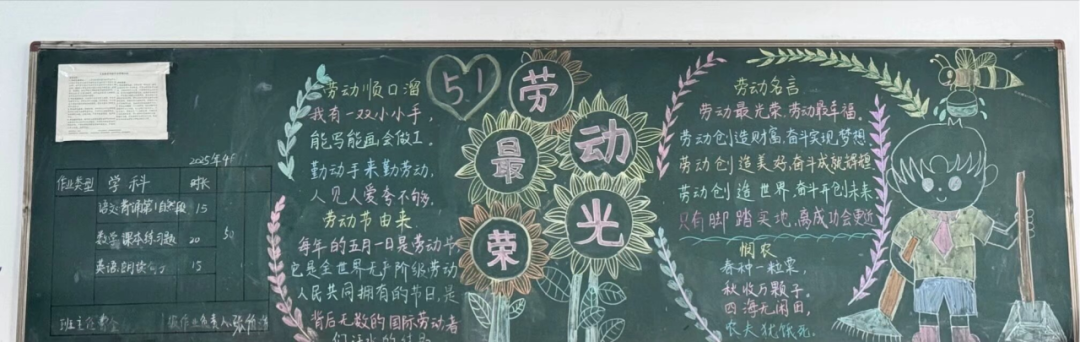 2025年
作业类型 学科 时长
15
数学 课本练习题 20
50
英语 朗读 15
班主任
劳动顺口溜
我有一双小小手,
能写能画会做工。
勤动手来勤劳动,
人见人爱夸不够。
劳动节由来
每年的五月一日是劳动节
它是全世界无产阶级劳动
人民共同拥有的节日,是
背后无数的国际劳动者
51
劳
动
最
光
荣
劳动名言
劳动最光荣,劳动最幸福。
劳动创造财富,奋斗实现梦想
劳动创造美好,奋斗成就
劳动创造世界,奋斗开创未来
只有脚踏实地,离成功会更近
悯农
春种一粒粟,
秋收万颗子。
四海无闲田,
农夫犹饿死。